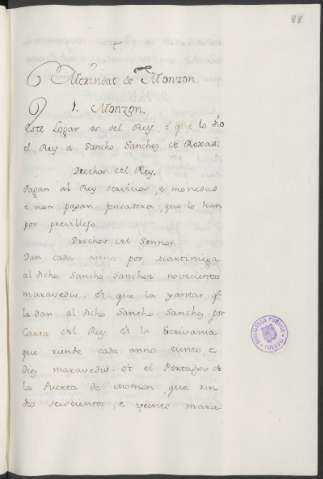 88
Merindat de Monzon.
1. Monzon.
Este Logar es del Rey, e que lo dio
el Rey a Sancho Sanchez de Roxas.
Derechos del Rey.
Pagan al Rey servicios, e monedas
e non pagan fonsadera, que lo han
por previllejo.
Derechos del Sennor.
Dan cada anno por martiniega
al dicho Sancho Sanchez novecientos
maravedis. Et que la yantar qe
la dan al dicho Sancho Sanchez por
Carta del Rey. Et la Escrivania
que rinde cada anno ciento e
diez maravedis. Et el Portazgo de
la Puerta de Monzon que rin
dio seiscientos, e veinte mara